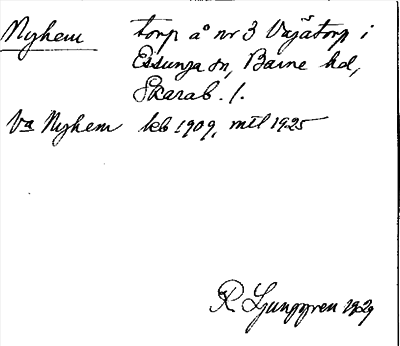 Nyhem torp å nr 3 Vajåtorp i
Essunga sn, Barne hd,
Skarab. l.
Va Nyhem kb 1909, mtl 1925
R Ljunggren 1929